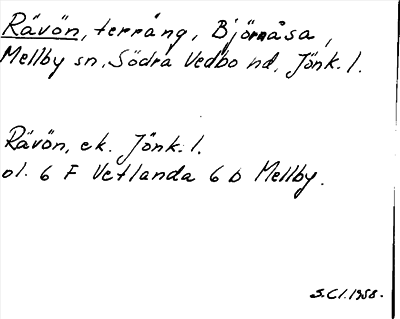 Rävön, terräng, Björnåsa,
Mellby sn, Södra Vedbo hd, Jönk. l.
Rävön, ek. Jönk. l.
ol. 6 F Vetlanda 6 b Mellby.
S.Cl. 1958.